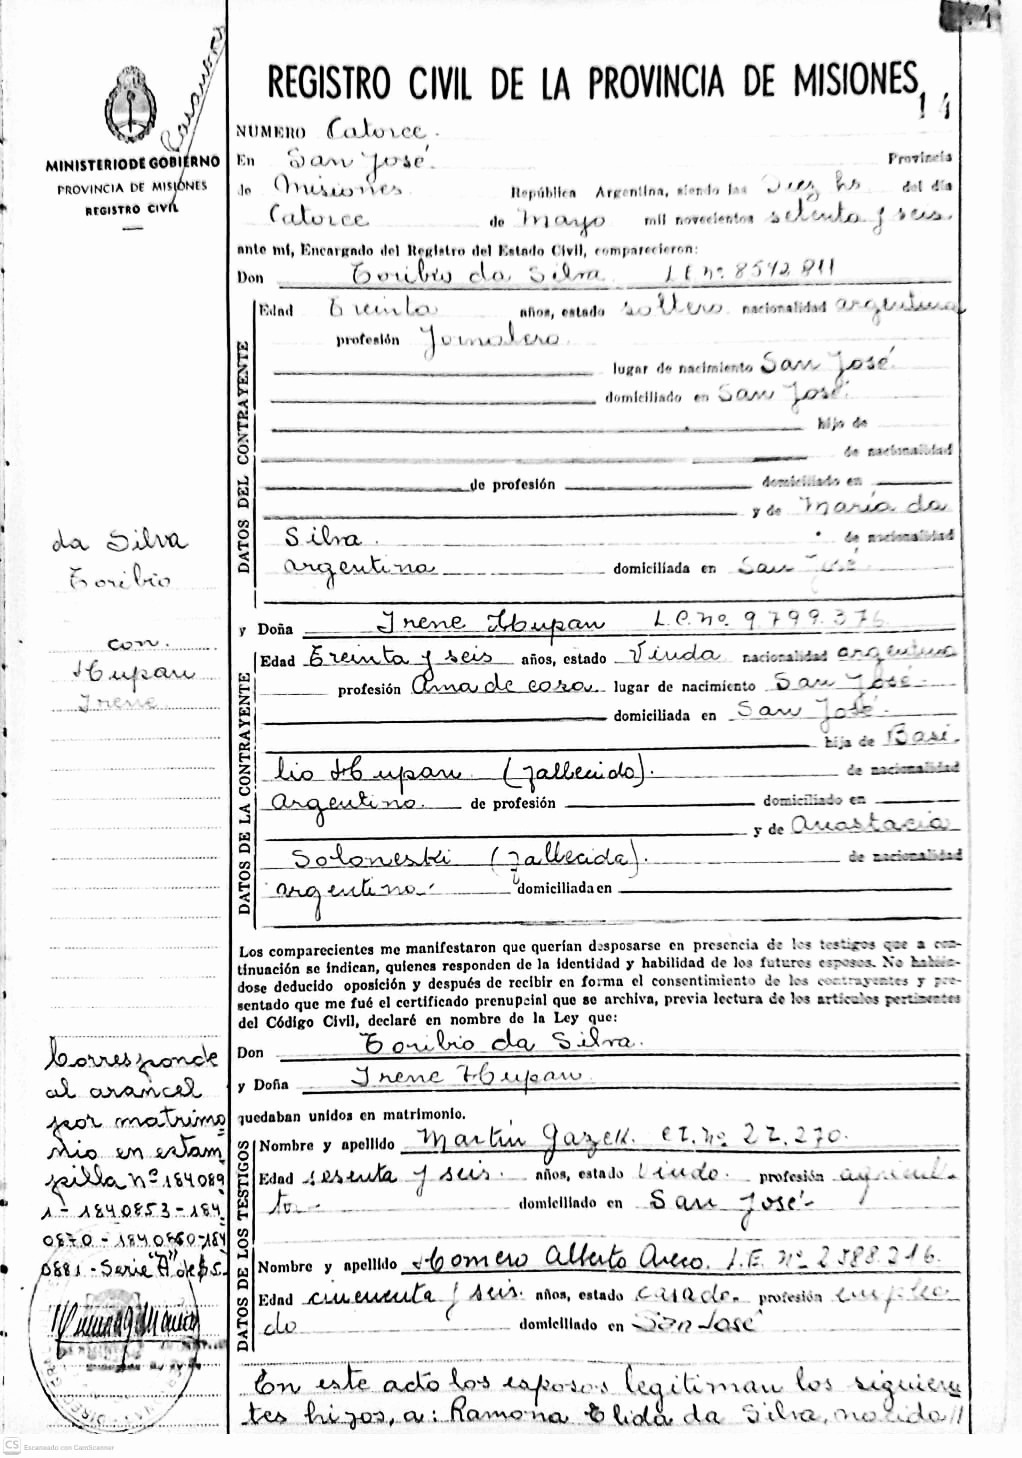 REGISTRO CIVIL DE LA PROVINCIA DE MISIONES
14
MINISTERIO DE GOBIERNO
PROVINCIA DE MISIONES
REGISTRO CIVIL
NUMERO Catorce.
En San José. Provincia
de Misiones República Argentina, siendo las Diez hs del día
Catorce de Mayo mil novecientos setenta y seis.
ante mí, Encargado del Registro del Estado Civil, comparecieron:
Don Toribio da Silva L.E nº 8542811
DATOS DEL CONTRAYENTE
Edad Treinta años, estado soltero nacionalidad argentina
profesión Jornalero
lugar de nacimiento San José
domiciliado en San José.
hijo de
de nacionalidad
de profesión domiciliado en
y de María da
Silva. de nacionalidad
argentina domiciliada en San José
da Silva
Toribio
con.
Hupan
Irene
y Doña Irene Hupan L.C. nº 9.799.376
DATOS DE LA CONTRAYENTE
Edad Treinta y seis años, estado Viuda nacionalidad argentina
profesión Ama de casa lugar de nacimiento San José
domiciliada en San José.
hija de Basi-
lio Hupan (fallecido). de nacionalidad
Argentino. de profesión domiciliado en
y de Anastacia
Soloneski (fallecida). de nacionalidad
argentina. domiciliada en
Los comparecientes me manifestaron que querían desposarse en presencia de los testigos que a con-
tinuación se indican, quienes responden de la identidad y habilidad de los futuros esposos. No habién-
dose deducido oposición y después de recibir en forma el consentimiento de los contrayentes y pre-
sentado que me fué el certificado prenupcial que se archiva, previa lectura de los artículos pertinentes
del Código Civil, declaré en nombre de la Ley que:
Don Toribio da Silva.
y Doña Irene Hupan
quedaban unidos en matrimonio.
Corresponde
al arancel
por matrimo
nio en estam
pilla nº 184089
1 - 1840853 - 184
0870 - 1840860 - 184
0881 - Serie "A" de $5.
DATOS DE LOS TESTIGOS
Nombre y apellido Martín Gazell. C.I. nº 22.270.
Edad sesenta y seis. años, estado Viudo. profesión agricul-
tor- domiciliado en San José
Nombre y apellido Homero Alberto Areco. L.E. nº 2588.216.
Edad cincuenta y seis. años, estado casado. profesión emplea
do domiciliado en San José
En este acto los esposos legitiman los siguien
tes hijos, a: Ramona Elida da Silva, nacida //
CS Escaneado con CamScanner